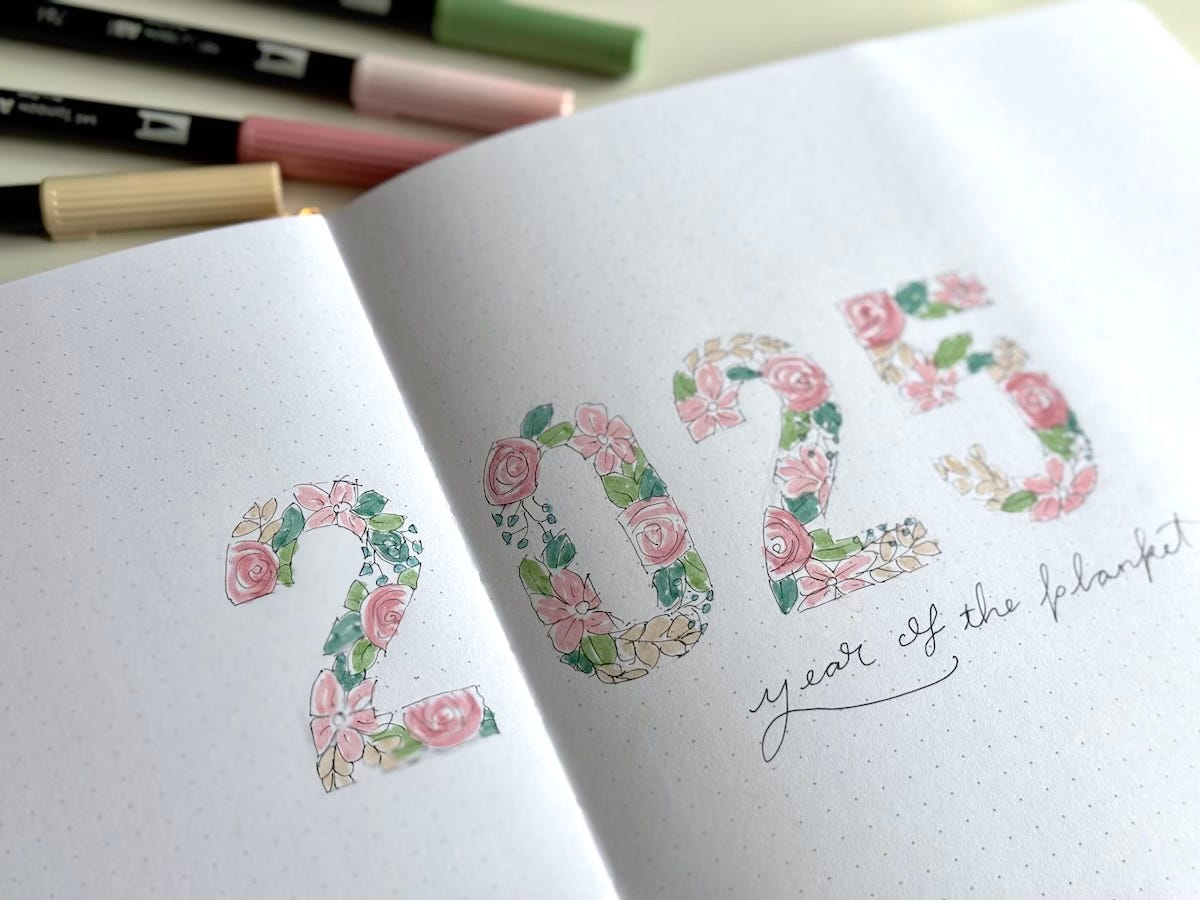 2025
year of the blanket